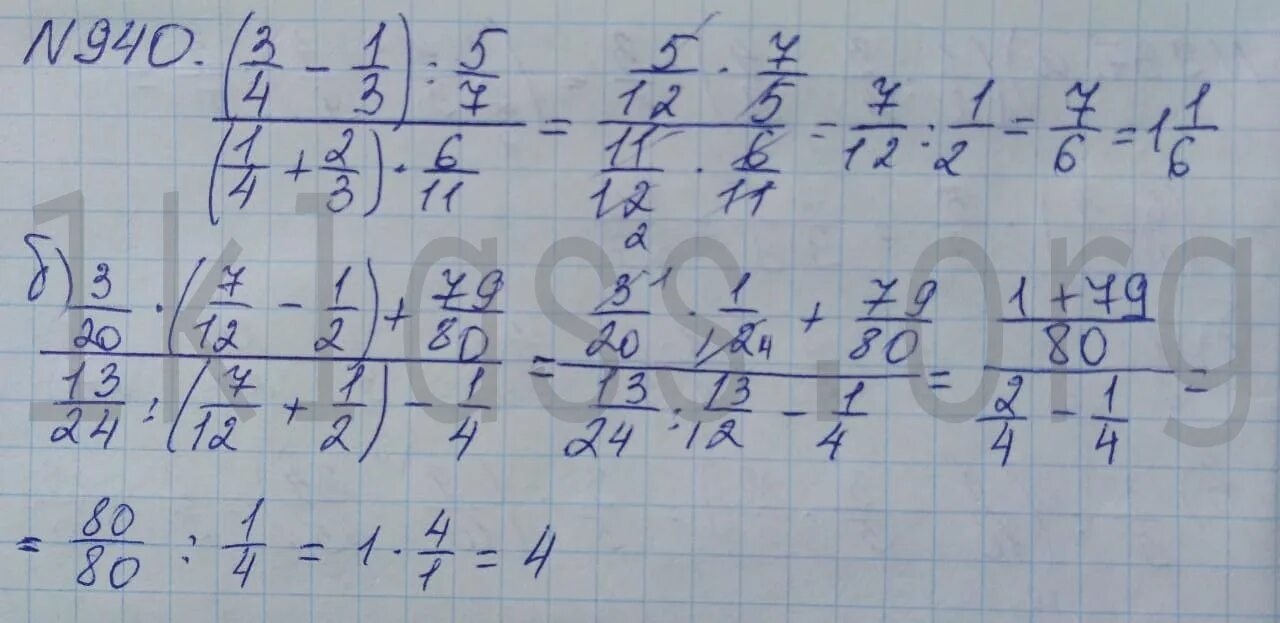 N940. ((3/4 - 1/3) : 5/7) / ((1/4 + 2/3) · 6/11) = (5/12 · 7/5) / (11/12 · 6/11) = 7/12 : 1/2 = 7/6 = 1 1/6
2
б) (3/20 · (7/12 - 1/2) + 79/80) / (13/24 : (7/12 + 1/2) - 1/4) = (3/20 · 1/12 + 79/80) / (13/24 : 13/12 - 1/4) = ((1 + 79)/80) / (2/4 - 1/4) =
1 4
= 80/80 : 1/4 = 1 · 4/1 = 4
1klass.org